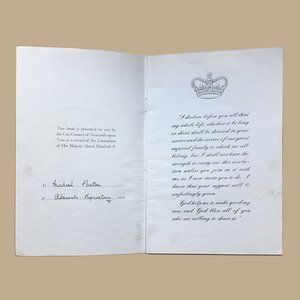 This book is presented to you by
the City Council of Newcastle upon
Tyne as a record of the Coronation
of Her Majesty Queen Elizabeth II
To Michael Panton
of
"I declare before you all that
my whole life, whether it be long
or short, shall be devoted to your
service and the service of our great
imperial family to which we all
belong, but I shall not have the
strength to carry out this resolu-
tion unless you join in it with
me, as I now invite you to do. I
know that your support will be
unfailingly given.
God help me to make good my
vow, and God bless all of you
who are willing to share it."